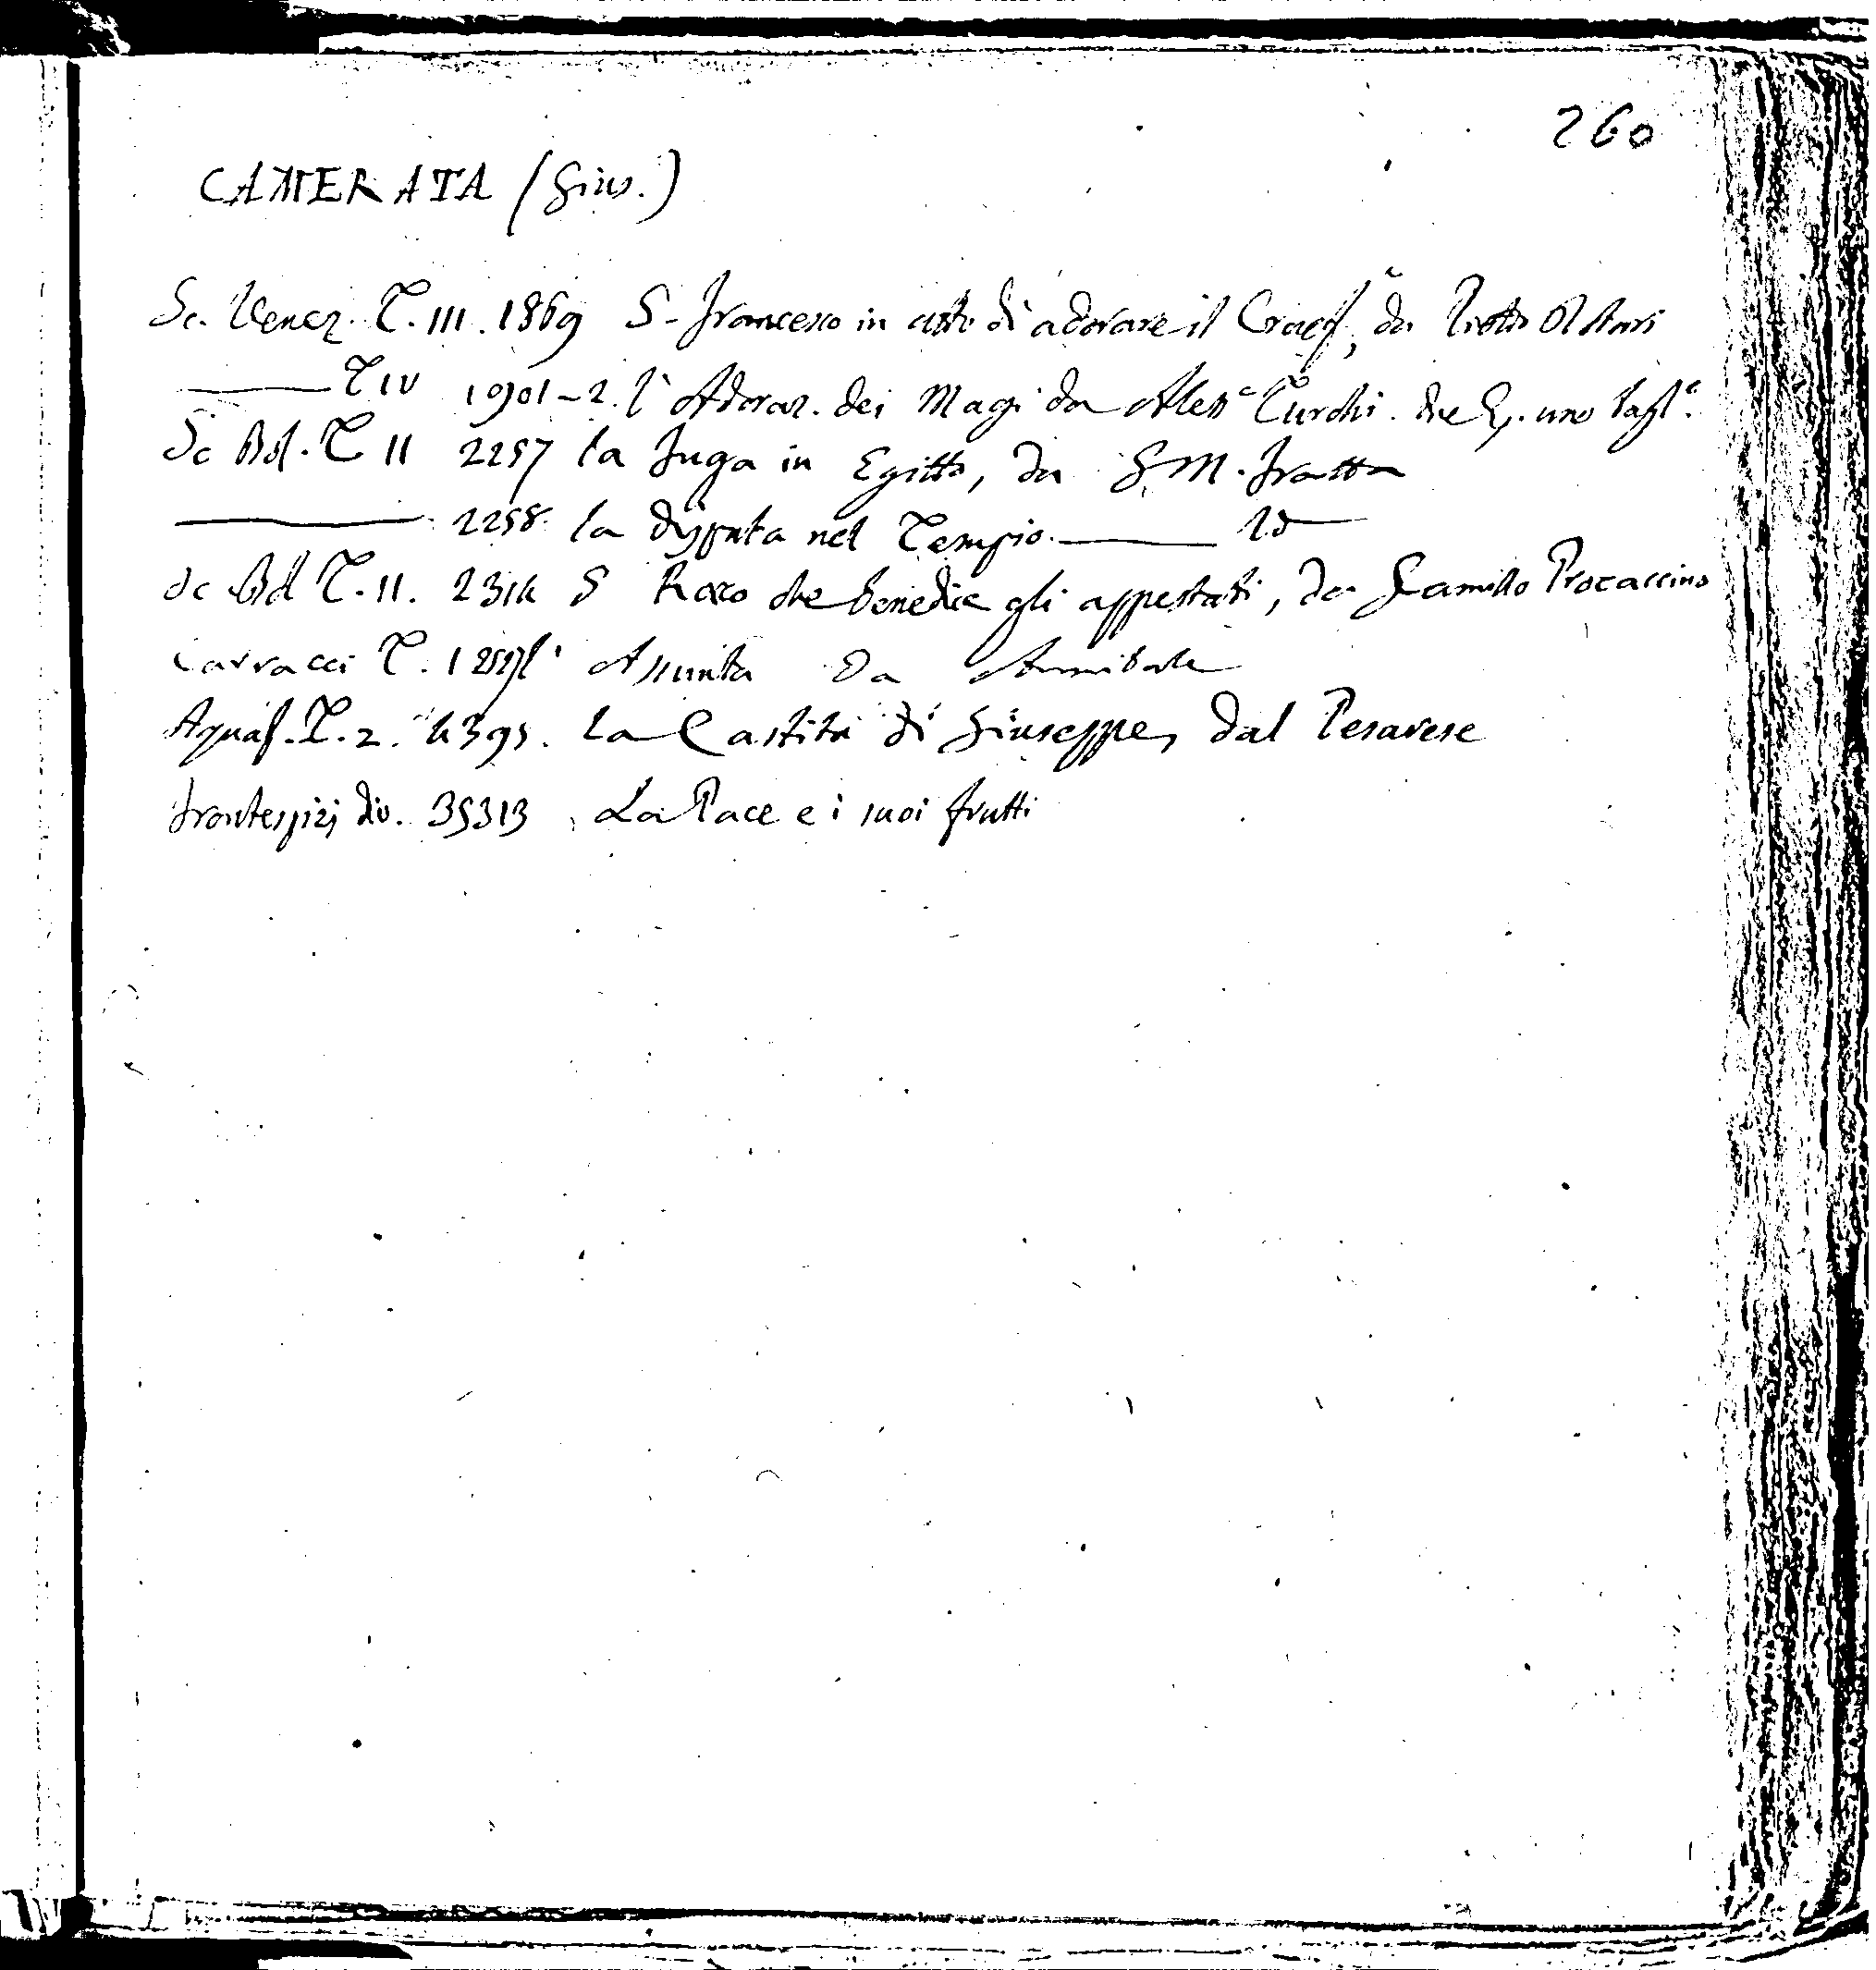 260
CAMERATA (Gius.)
Sc. Venez. T. III. 1869 S. Francesco in atto di adorare il Crocf, da
T IV 1901-2. l'Adoraz. dei Magi da Aless.o Turchi. due Es. uno tagl.o
Sc Bol. T II 2257 la Fuga in Egitto, da G. M. Fratta
2258 la disputa nel Tempio. Id
Sc Bol T. II. 2314 S Rocco che benedice gli appestati, da Camillo Procaccino
Carracci T. 1 l'Assunta da Annibale
Aquaf. T. 2. 4395. La Castità di Giuseppe, dal Pesarese
Frontespizj div. 35313 La Pace e i suoi frutti